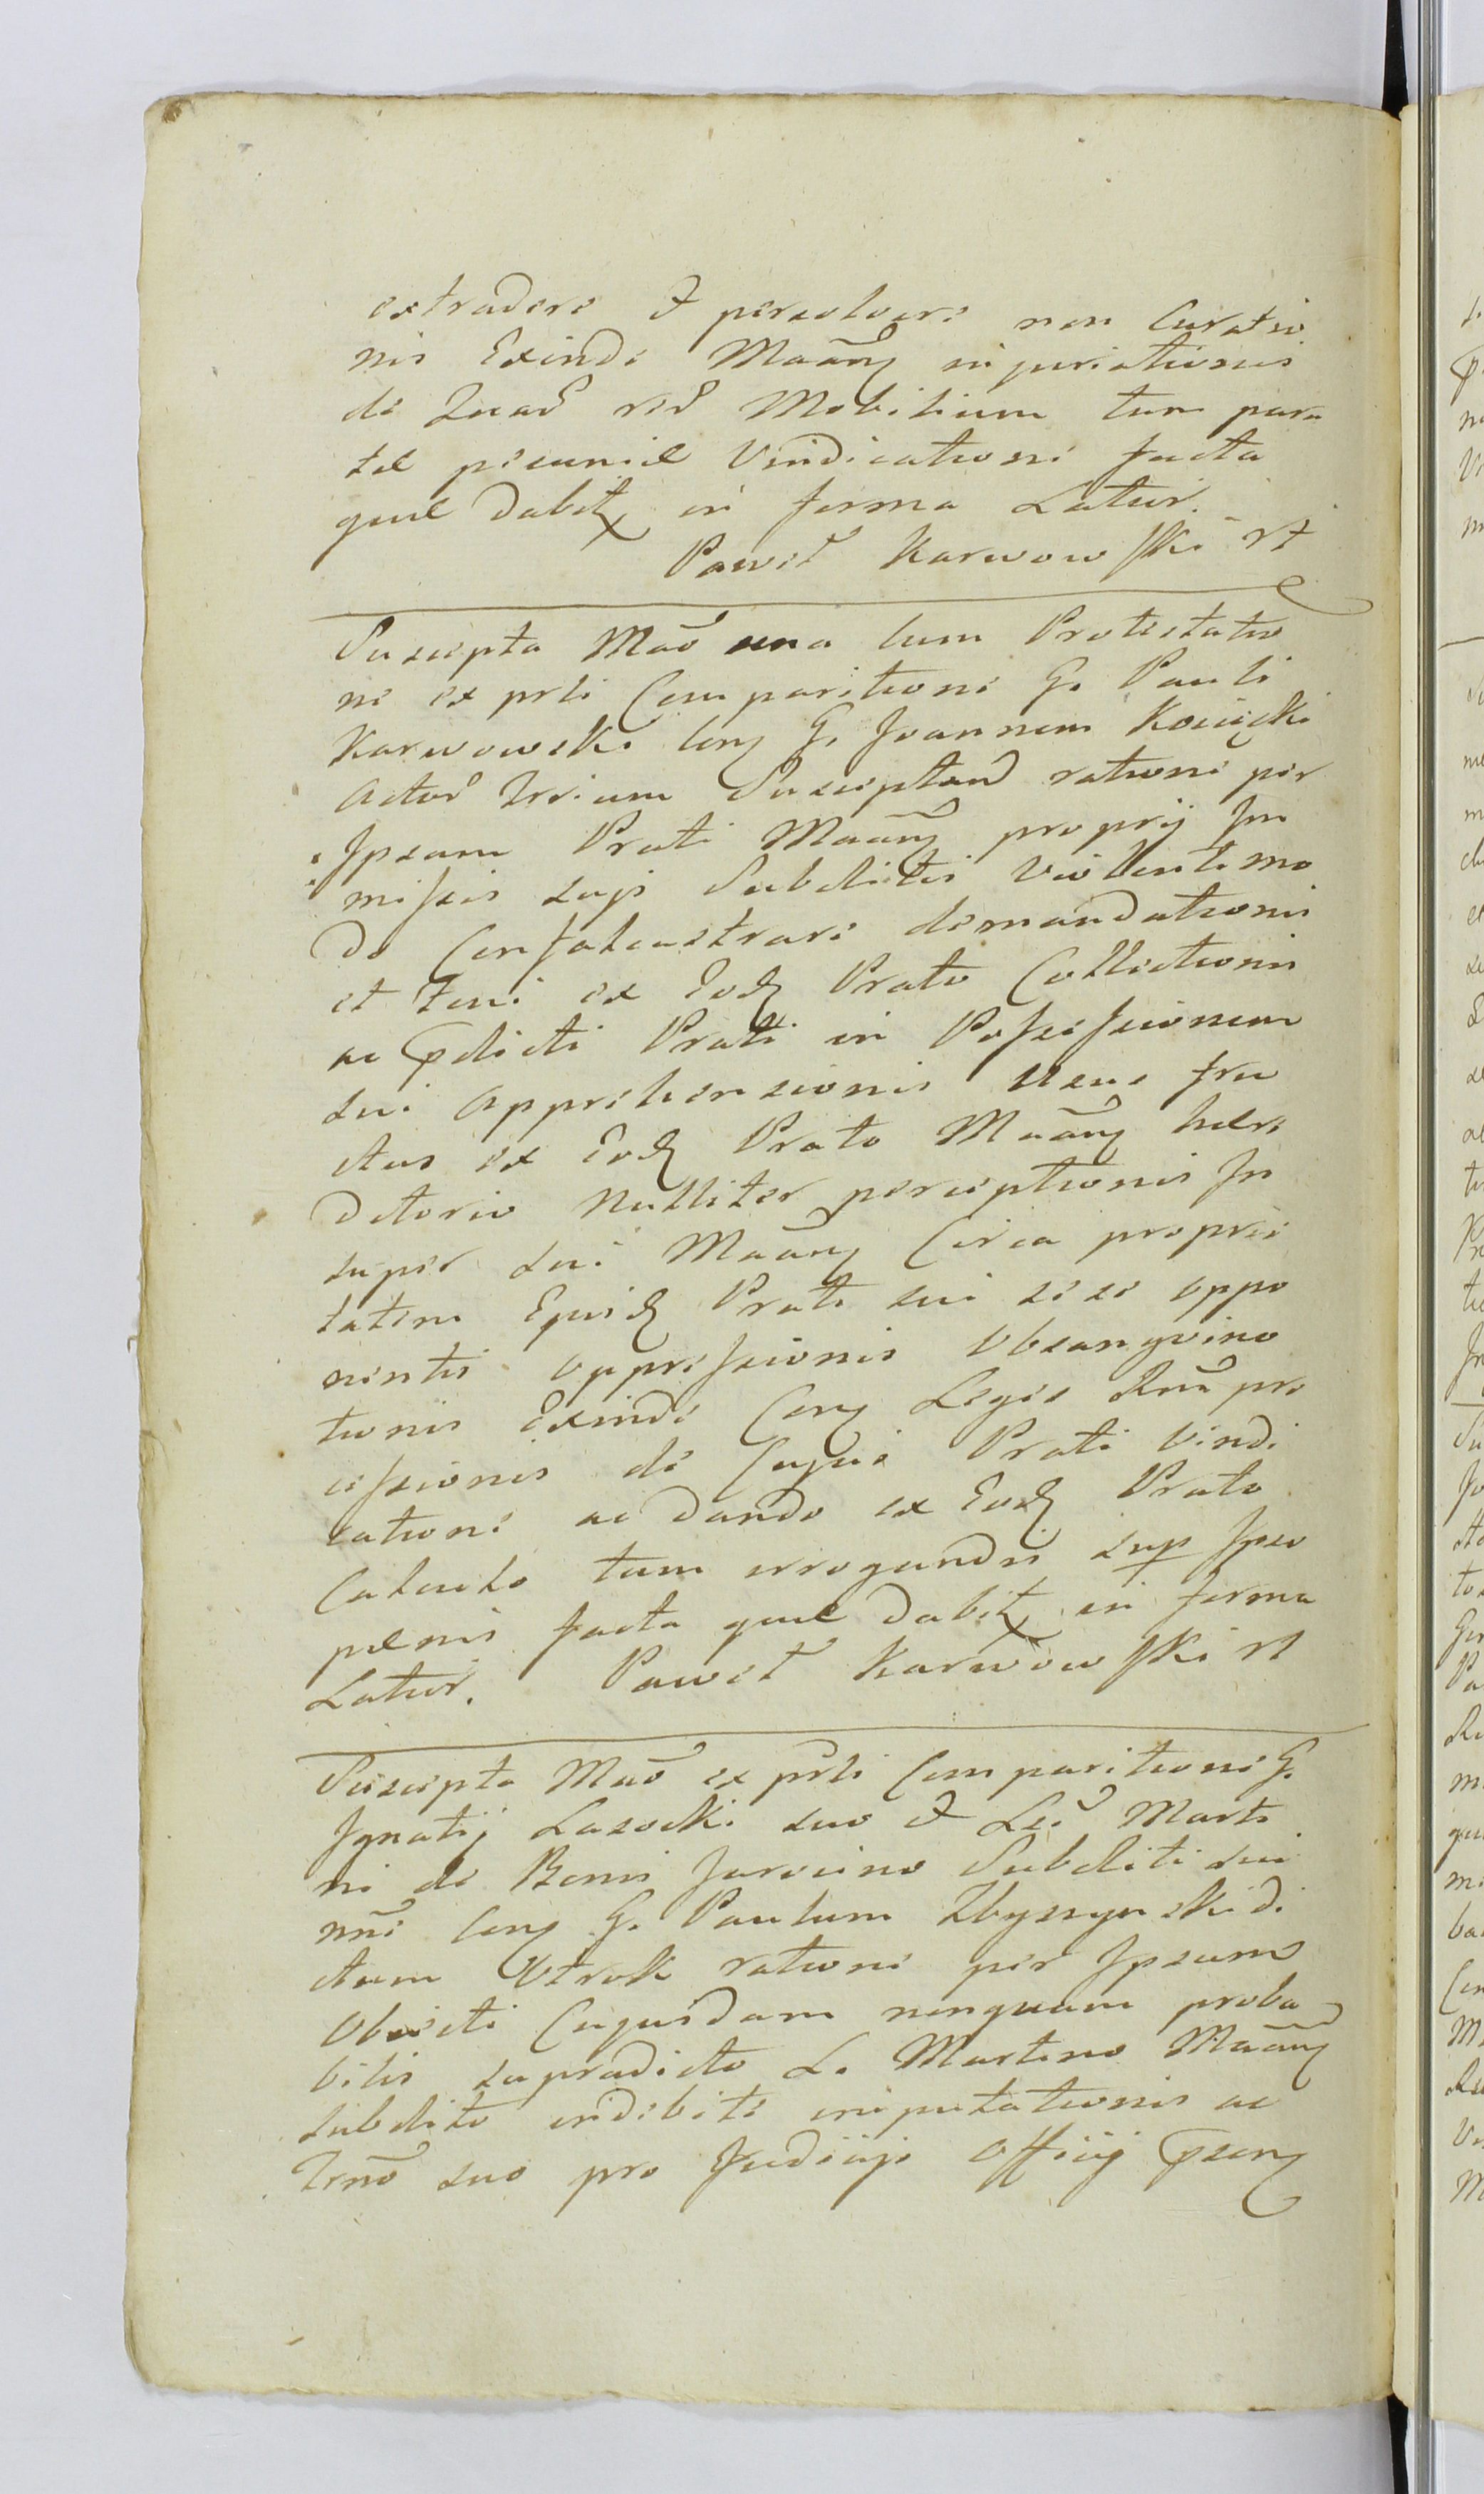 extradere & persolvere non Curatio
nis Exinde Maãnꝫ injuriationis
de quad red Mobilium tum para
tæ pecuniæ Vindicatione facta
quæ dabitꝫ in forma Latior.
Paweł Karwowski rt
Suscepta Mão una Cum Protestatio
ne ex prli Comparitione G. Pauli
Karwowski Conꝫ G. Joannem Kosicki
Actor Suscipiend ratione per
Ipsum Prati Maãnꝫ proprij Im
missis suis Subditis Violento mo
do Confalcastrare demandationis
et Feni ex Eodꝫ Prato Collectionis
ac pdicti Prati in Possessionem
sui Apprehensionis Usus fru
ctus ex Eodꝫ Prato Maãnꝫ hære
ditario Nulliter perceptionis In
super sui Maãnꝫ Circa proprie
tatem Ejusdꝫ Prati sui sese oppo
nentis oppressionis Obsangvino
tionis Exinde Conꝫ Legis Rñi pro
cessionis de Cujus Prati Vindi
catione ac dando ex Eodꝫ Prato
Calculo tum irrogandis sup Ipso
pænis facta quæ dabitꝫ in forma
Latior. Paweł Karwowski rt
Suscepta Mão ex prli Comparitione G.
Ignatij Lasocki suo & La Marti
ni de Bonis Jarocino Subditi sui
nñe Conꝫ G. Paulum Zbyszynski di
ctum Wtrok ratione per Ipsum
Obiecti Cujusdam nonquam proba
bilis supradicto L. Martino Maãnꝫ
subdito indebite imputationis ac
suo pro Judicijs Officij psenꝫ